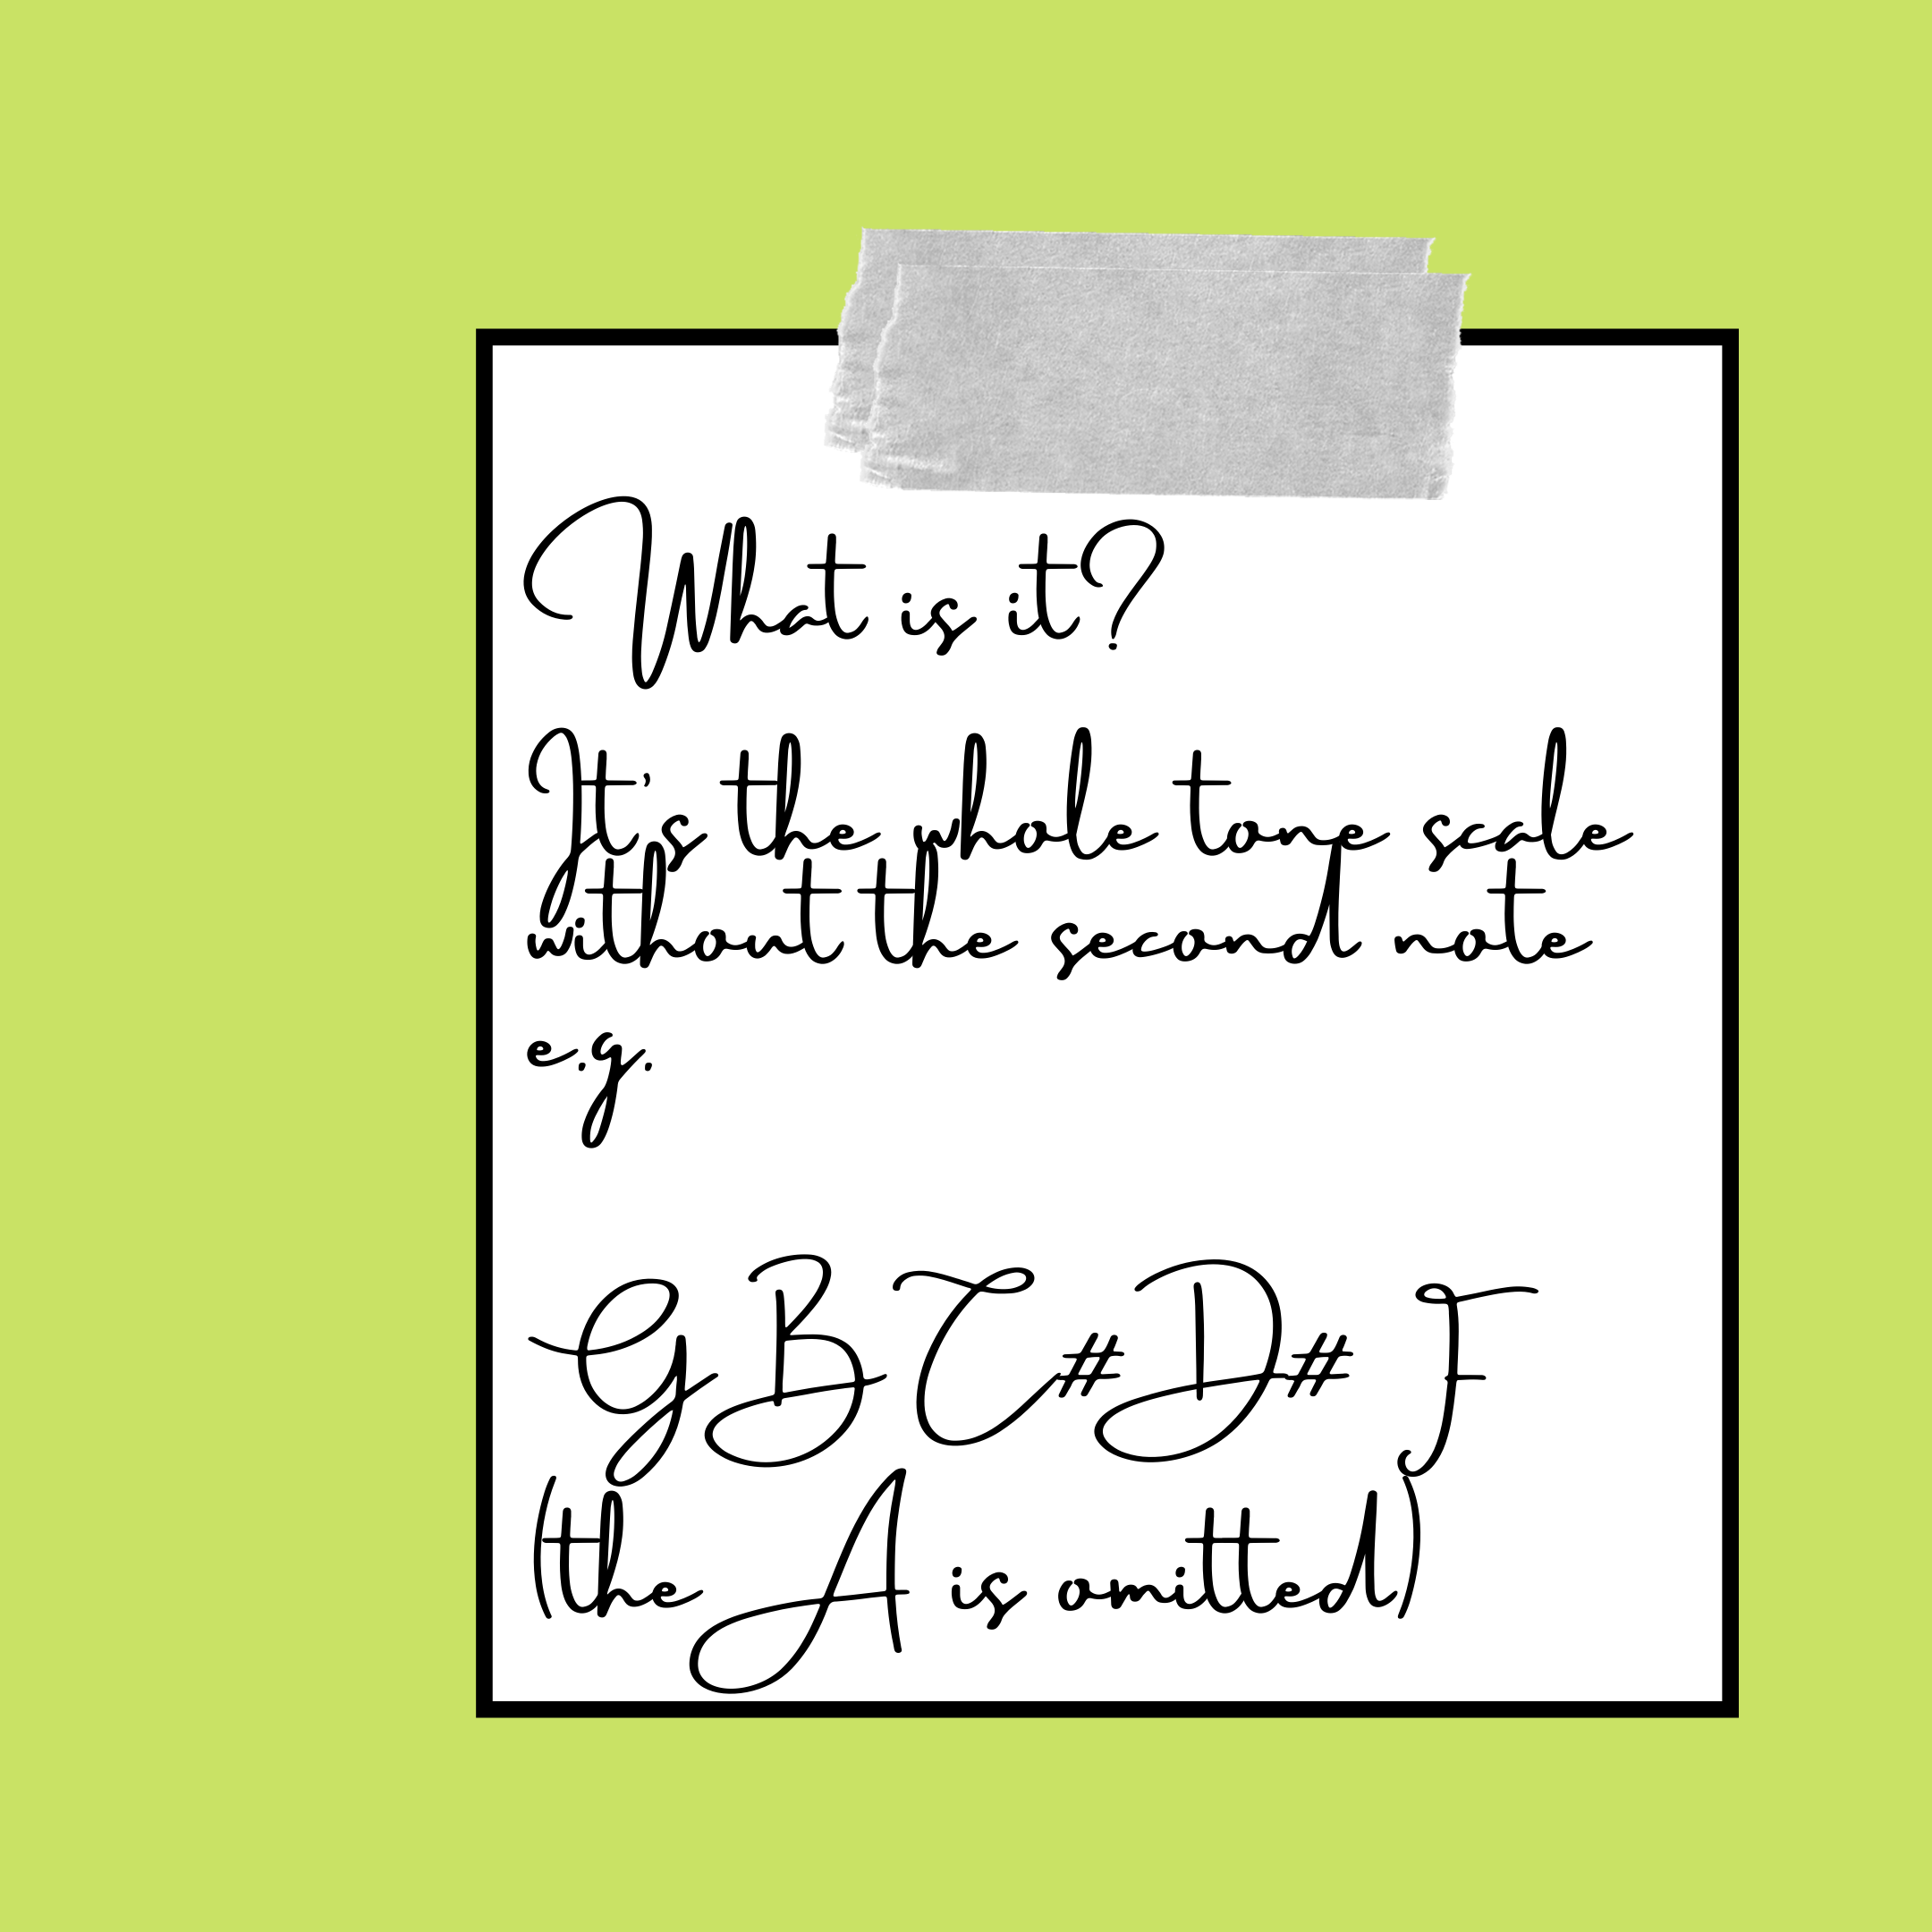 What is it?
It's the whole tone scale
without the second note
e.g.
G B C# D# F
(the A is omitted)